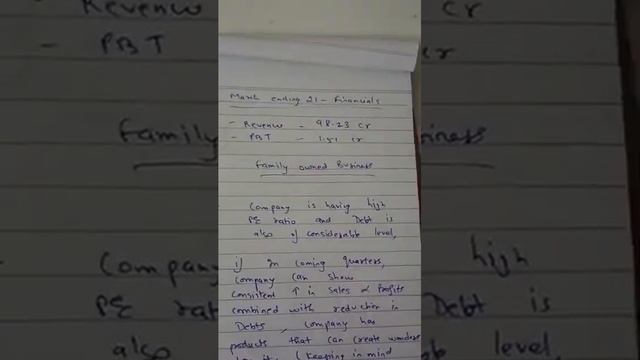 March ending 21 - Financials
- Revenue - 98.23 cr
- PBT - 1.51 cr
Family owned Business
Company is having high
PE ratio and Debt is
also of considerable level,
if in coming quarters,
company can show
consistent ↑ in sales & Profits
combined with reduction in
Debts, company has
products that can create wonders
(keeping in mind